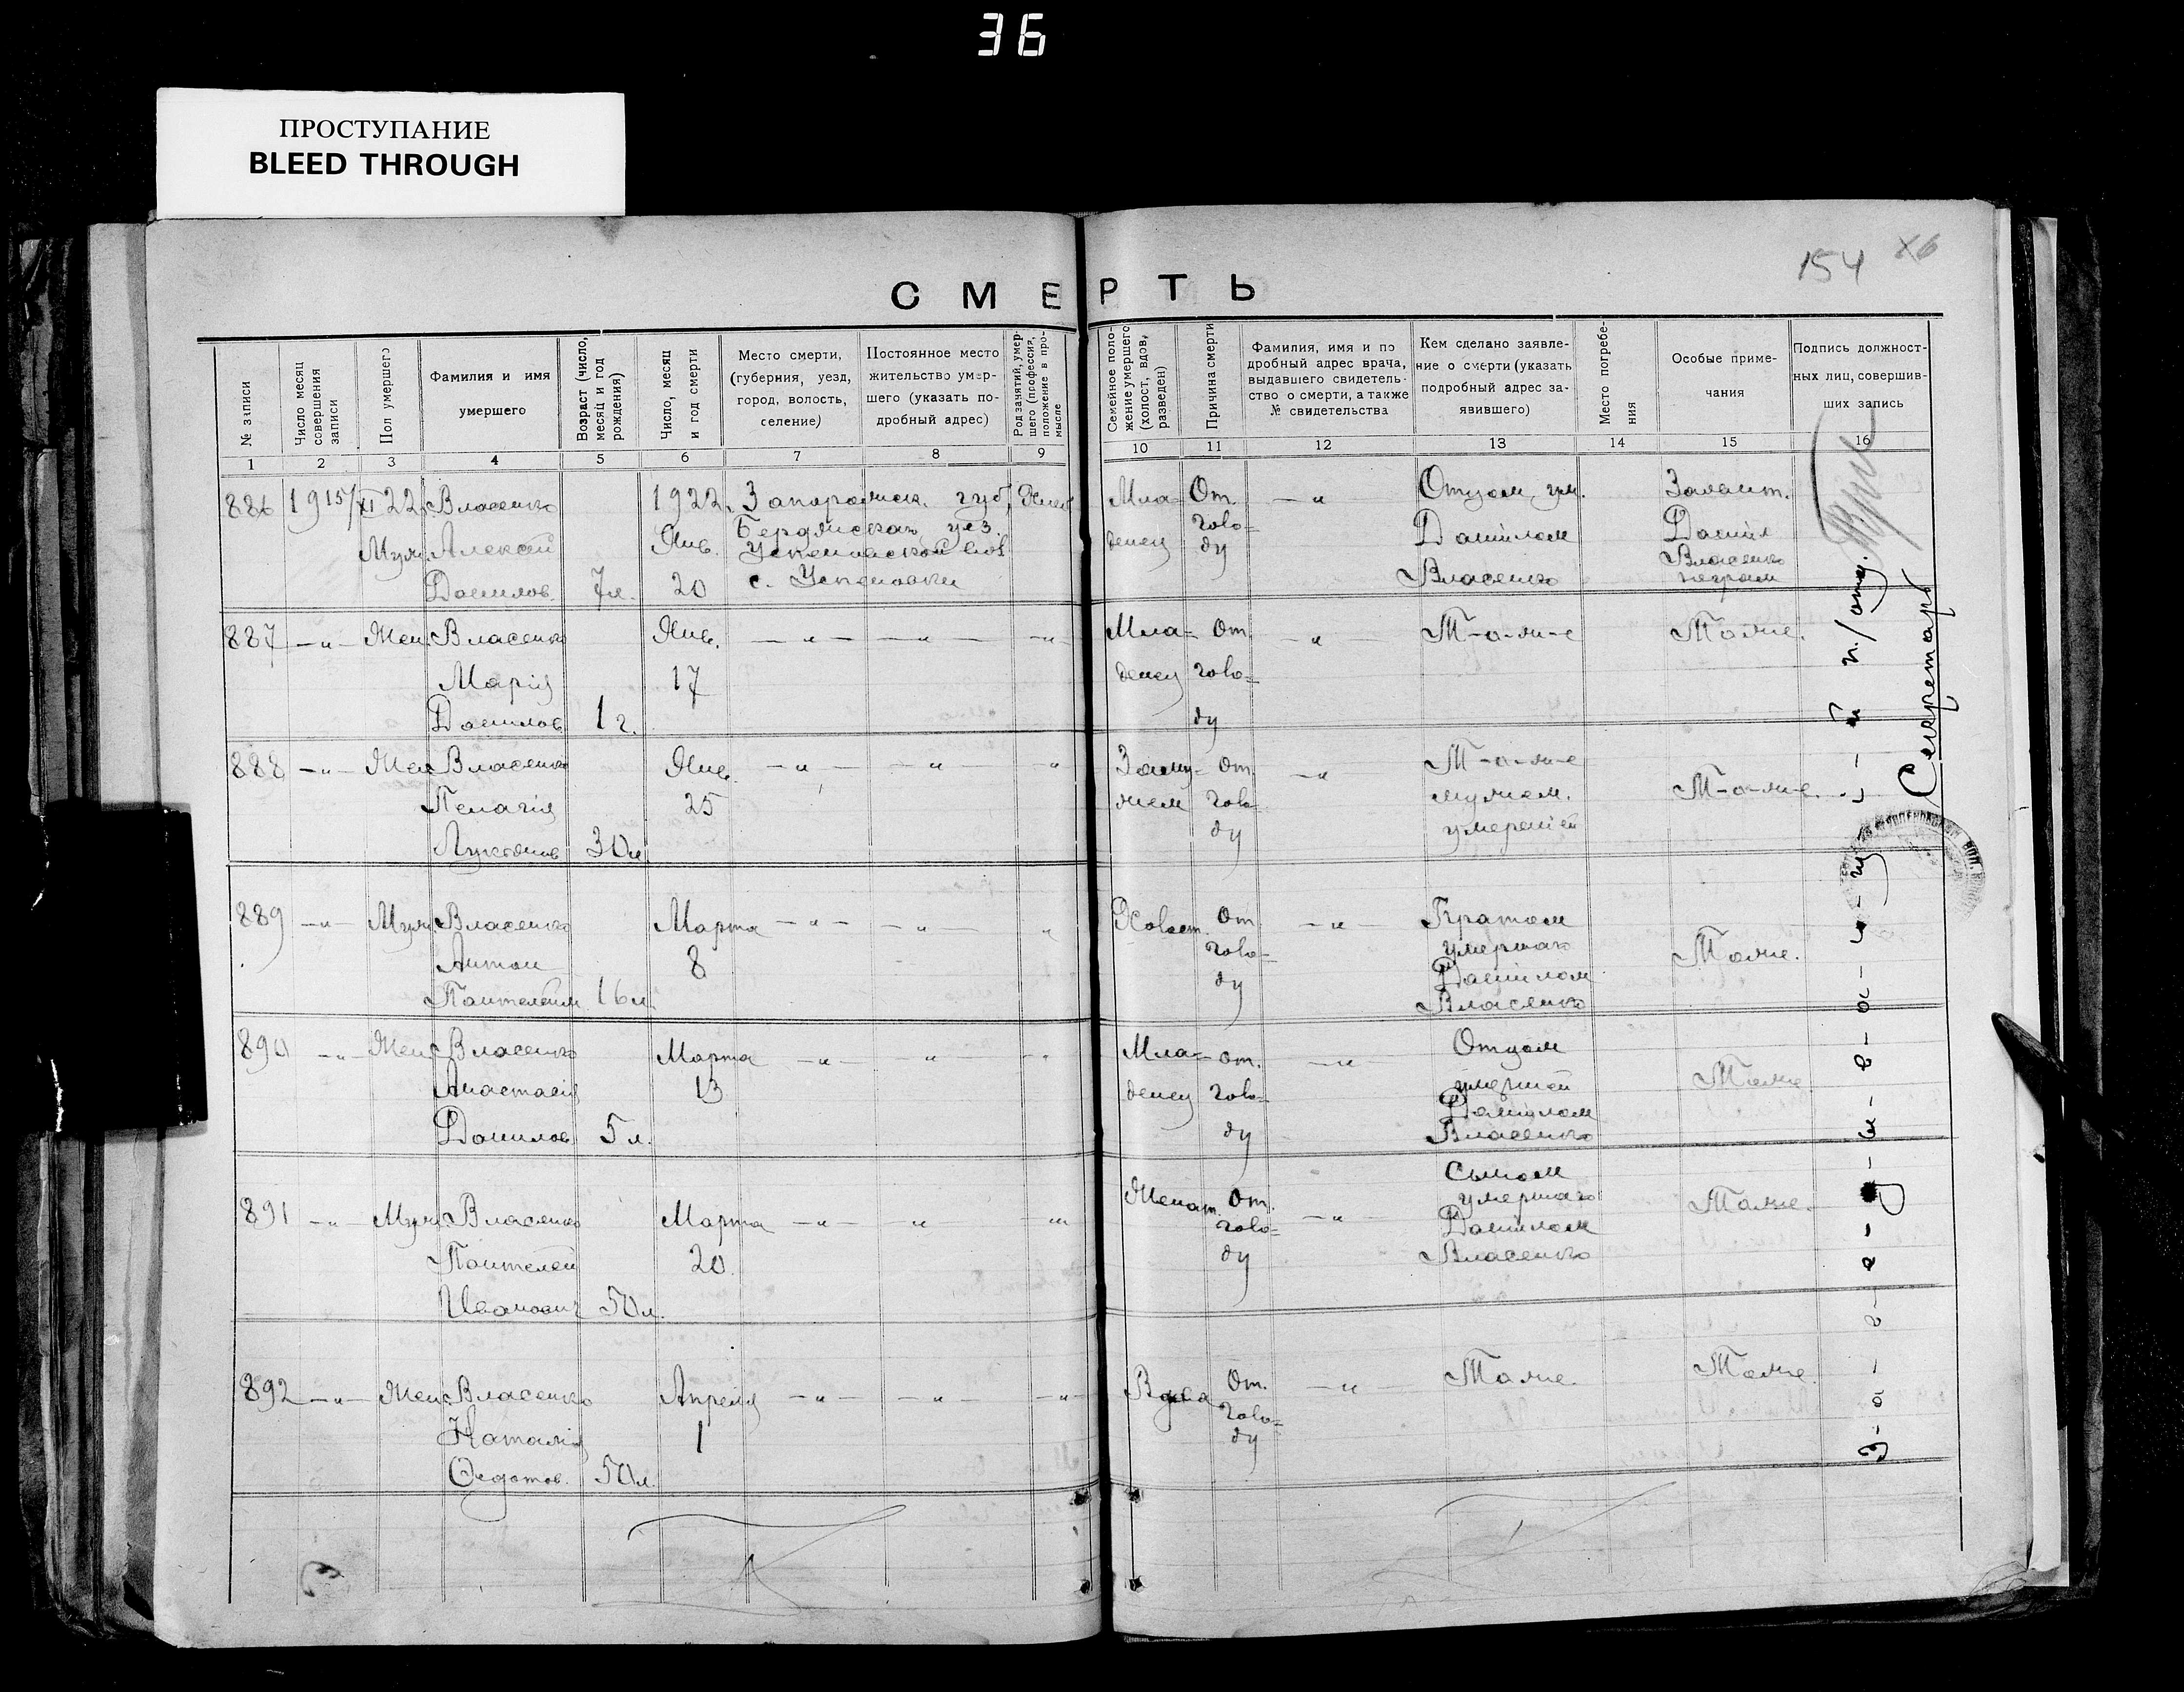 36
ПРОСТУПАНИЕ
BLEED THROUGH
154
Х6
СМЕРТЬ
№ записи
Число месяц совершения записи
Пол умершего
Фамилия и имя умершего
Возраст (число, месяц и год рождения)
Число, месяц и год смерти
Место смерти, (губерния, уезд, город, волость, селение)
Постоянное место жительство умершего (указать подробный адрес)
Род занятий, умершего (профессия, положение в промысле
Семейное положение умершего (холост, вдов, разведен)
Причина смерти
Фамилия, имя и подробный адрес врача, выдавшего свидетельство о смерти, а также № свидетельства
Кем сделано заявление о смерти (указать подробный адрес заявившего)
Место погребения
Особые примечания
Подпись должностных лиц, совершивших запись
1 2 3 4 5 6 7 8 9 10 11 12 13 14 15 16
886 1915/XI 22 Власенко 1922. Запорожск. губ. Мла- От. -"- Отцом, ум. Заявит.
Бердянскаго уез. голо- Данилом Данил
Муж. Алексей Янв. Успеновской вол денец ду Власенко
Данилов. 7л. 20 с. Успеновки Власенко неграм
887 -"- Жен. Власенко Янв. -"- -"- -"- Мла- От. -"- Т-о-ж-е Тоже.
Марія 17 денец голо-
Данилов 1 г. ду
888 -"- Жен Власенко Янв. -"- -"- " Заму- От. -"- Т-о-ж-е
Пелагія 25 жем голо- мужем. Т-о-ж-е.
Лукьянов 30л ду умершей
889 -"- Муж Власенко Марта -"- -"- " Холост. От. -"- Братом
Антон 8 голо- умершаго Тоже.
Пантелейм 16л. ду Данилом
Власенко
890 -"- Жен Власенко Марта -"- " -"- Мла- От. -"- Отцом
Анастасія 13 денец голо- умершей Тоже
Данилов 5 л. ду Данилом
Власенко
891 -"- Муж Власенко Марта -"- -"- " Женат. От. -"- Сыном
Пантелей 20. голо- умершаго Тоже.
Иванович 50л. ду Данилом
Власенко
892 -"- Жен. Власенко Апреля -"- -"- -"- Вдова От. -"- Тоже. Тоже.
Наталія 1 голо-
Федотов. 50л. ду
Секретарь